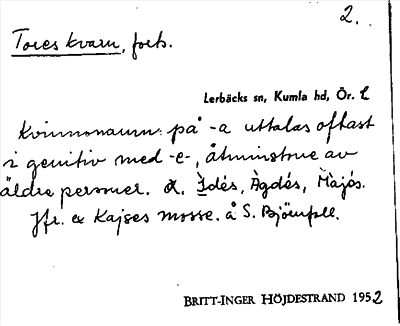 2.
Tores kvarn, forts.
Lerbäcks sn, Kumla hd, Ör. l
Kvinnonamn på -a uttalas oftast
i genitiv med -e-, åtminstone av
äldre personer. Ídés, Àgdés, Màjós.
Jfr. ex Kajses mosse. å S. Björnfall.
BRITT-INGER HÖJDESTRAND 1952